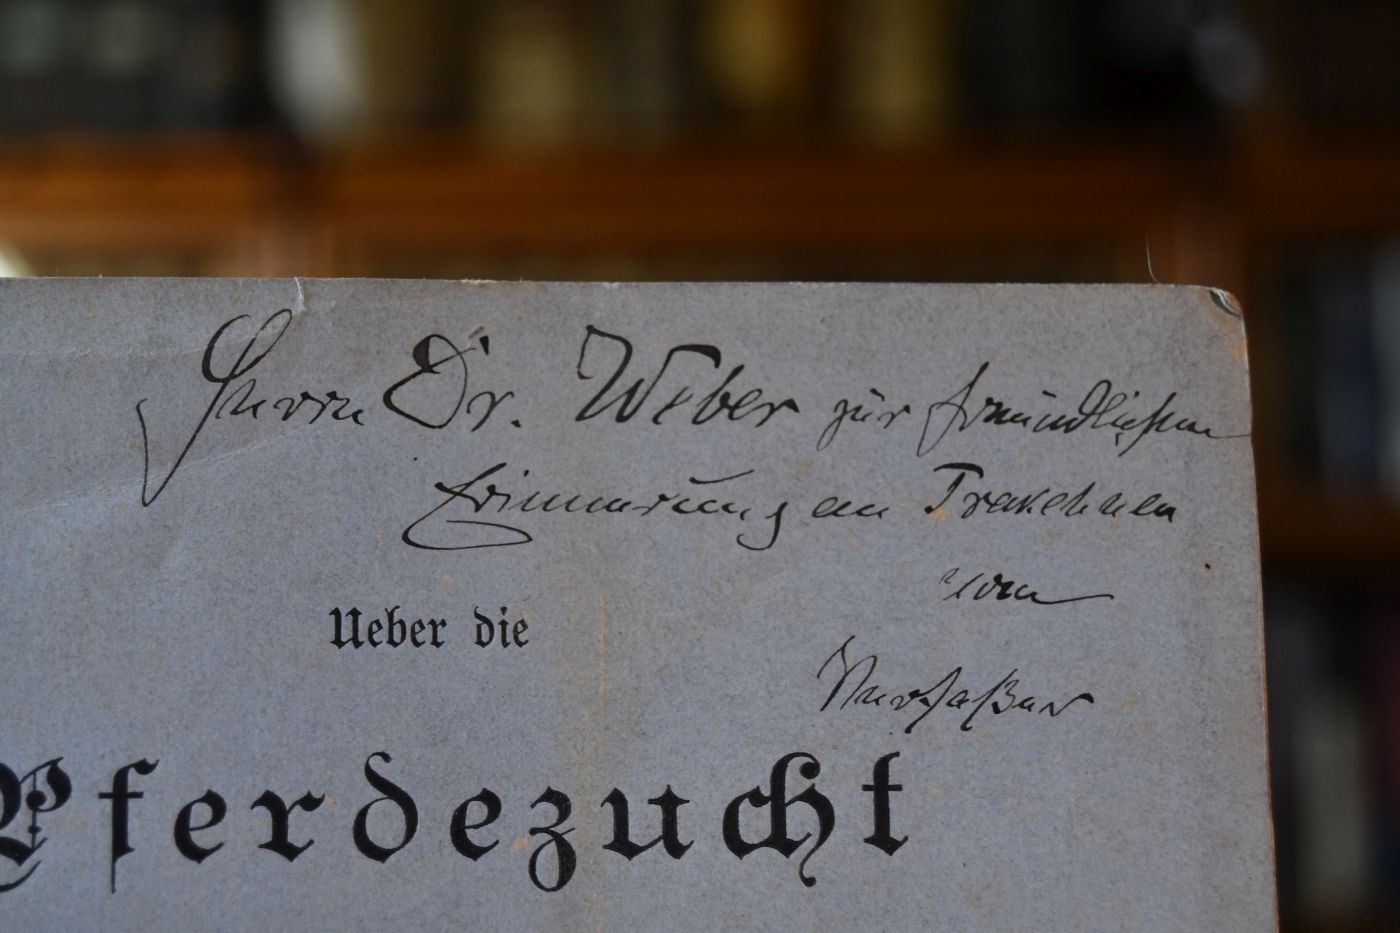 Herrn Dr. Weber zur freundlichen
Erinnerung an Trakehnen
vom
Verfaßer
Ueber die
Pferdezucht